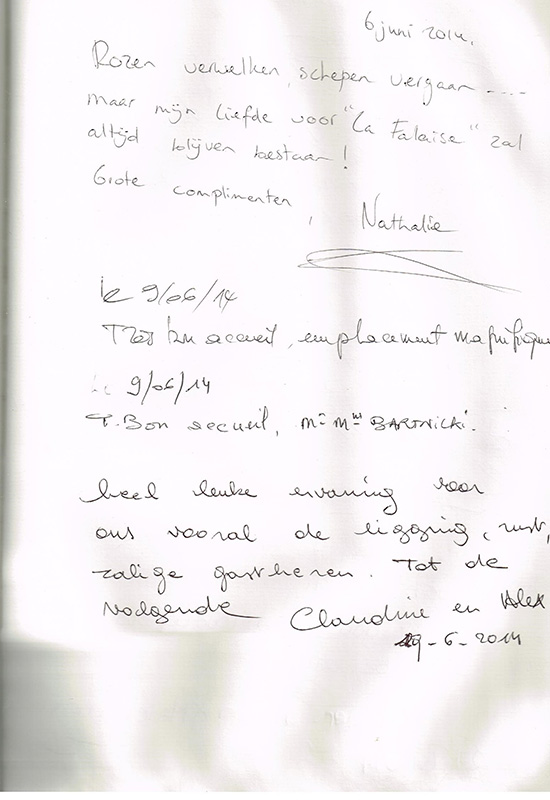 6 juni 2014.
Rozen verwelken, schepen vergaan ....
maar mijn liefde voor "La Falaise" zal
altijd blijven bestaan !
Grote complimenten,
Nathalie
le 9/06/14
Très bon accueil, emplacement magnifique
Le 9/06/14
T. Bon accueil, Mr Mme BARTNICKI.
heel leuke ervaring voor
ons vooral de ligging, rust,
zalige gastheren. Tot de
volgende Claudine en Alex
19-6-2014